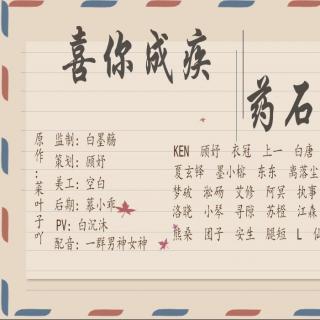 喜你成疾
药石
原作:菜叶子吖
监制: 白墨觞
策划: 顾妤
美工: 空白
后期: 慕小乖
PV: 白沉沐
配音: 一群男神女神
KEN 顾妤 衣冠 上一 白唐
夏玄铎 墨小榕 东东 嵩落尘
梦破 淞砀 艾修 阿冥 执事
洛晓 小琴 寻隙 苏橙 江森
熊桑 团子 安生 腿短 L 仙